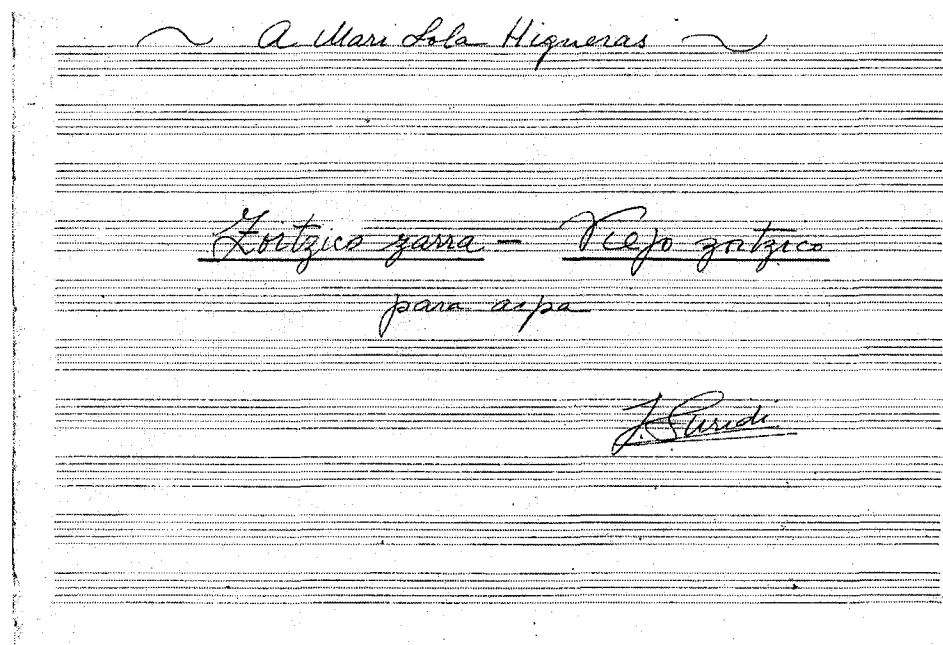 A Mari Lola Higueras
Zortzico zarra - Viejo zortzico
para arpa
J. Guridi